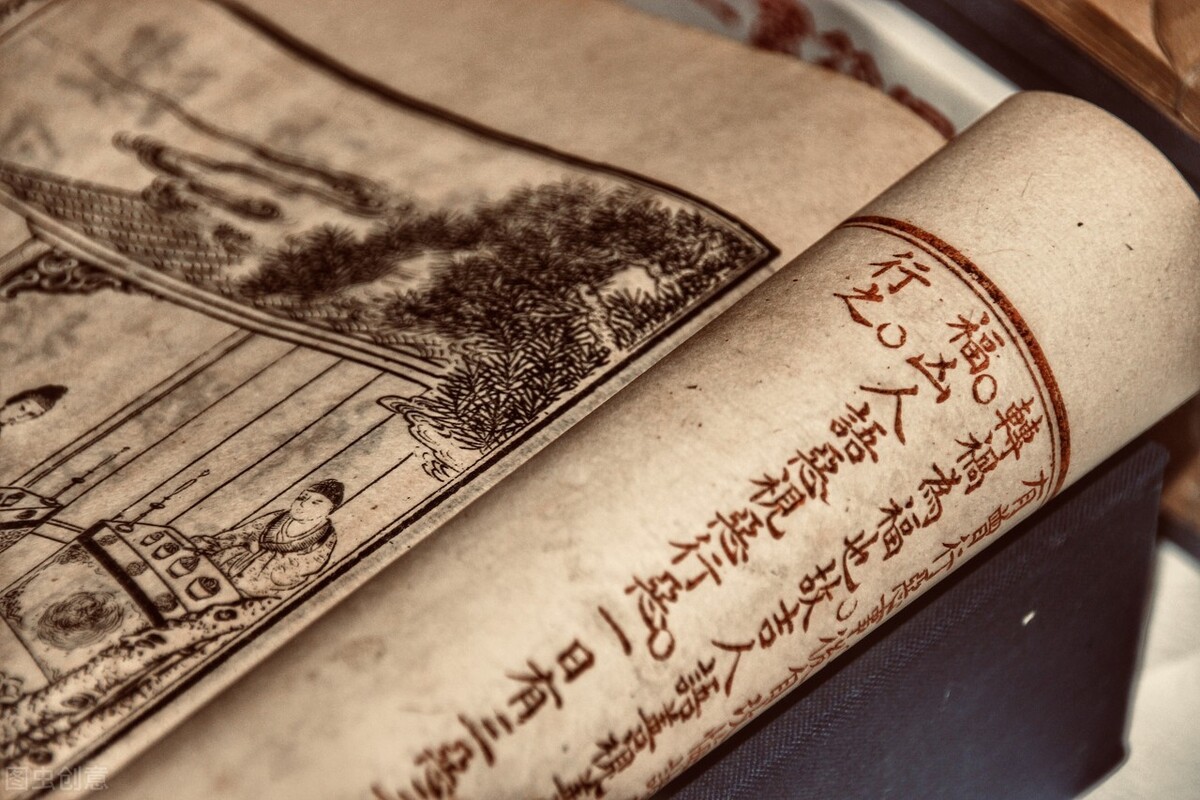 有曾行惡事○後自改悔諸
轉禍為福也故吉人語善視善
福○凶人語惡視惡行惡○一日有三惡
行之○
图虫创意